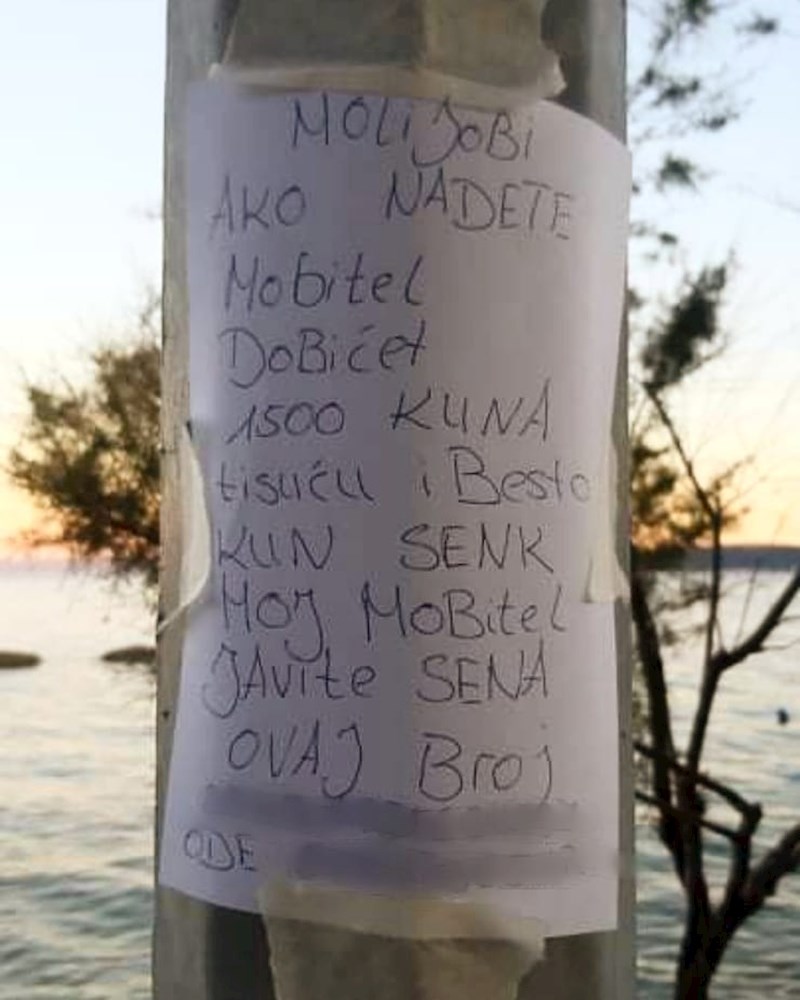 MOLiJoBi
AKO NADETE
Mobitel
DoBićet
1500 KUNA
tisuću i Besto
KUN SENK
MOJ MoBitel
JAvite SENA
OVAJ Broj
ODE